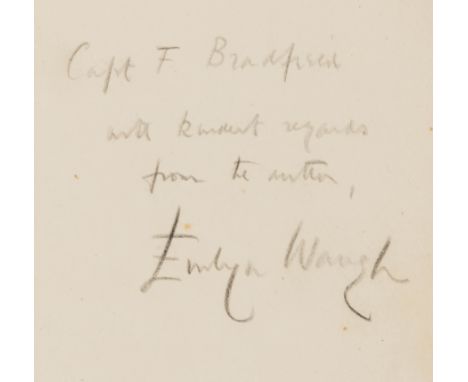 Capt F Bradfield
with kindest regards
from the author,
Evelyn Waugh